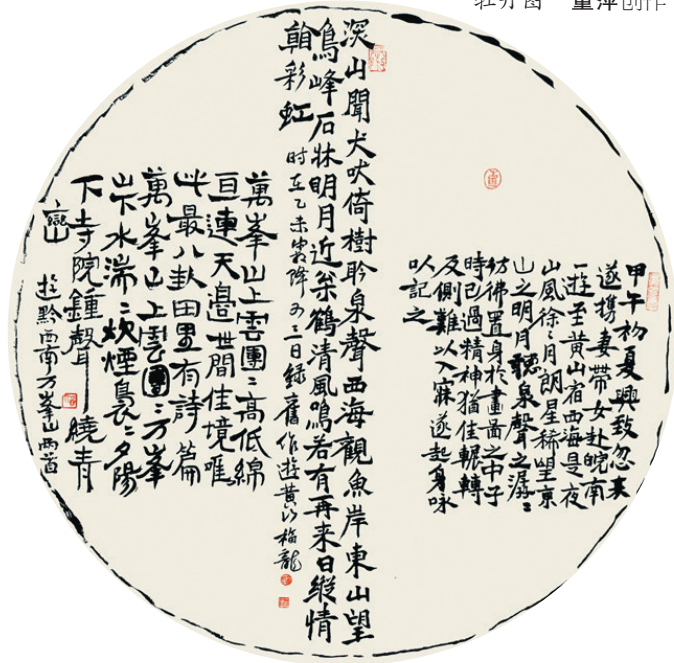 牡丹图 董萍创作
甲午初夏興致忽来
遂携妻带女赴皖南
一遊至黄山宿西海是夜
山風徐〻月朗星稀望京
山之明月聽泉聲之潺〻
彷彿置身於畫圖之中子
時已過精神猶佳輾轉
反側難以入寐遂起身咏
以記之
深山聞犬吠倚樹聆泉聲西海觀魚岸東山望
鳥峰石牀明月近翁鶴清風鳴若有再来日縱情
翰彩虹 时在乙未霜降前三日録舊作遊黄山 梅龍
萬峯山上雲團〻高低綿
亘連天邊世間佳境唯
此最八卦田里有詩篇
萬峯山上雲團〻万峯
山下水湍〻炊煙裊〻夕陽
下寺院鍾聲繞青
巒
遊黔西南万峯山两首